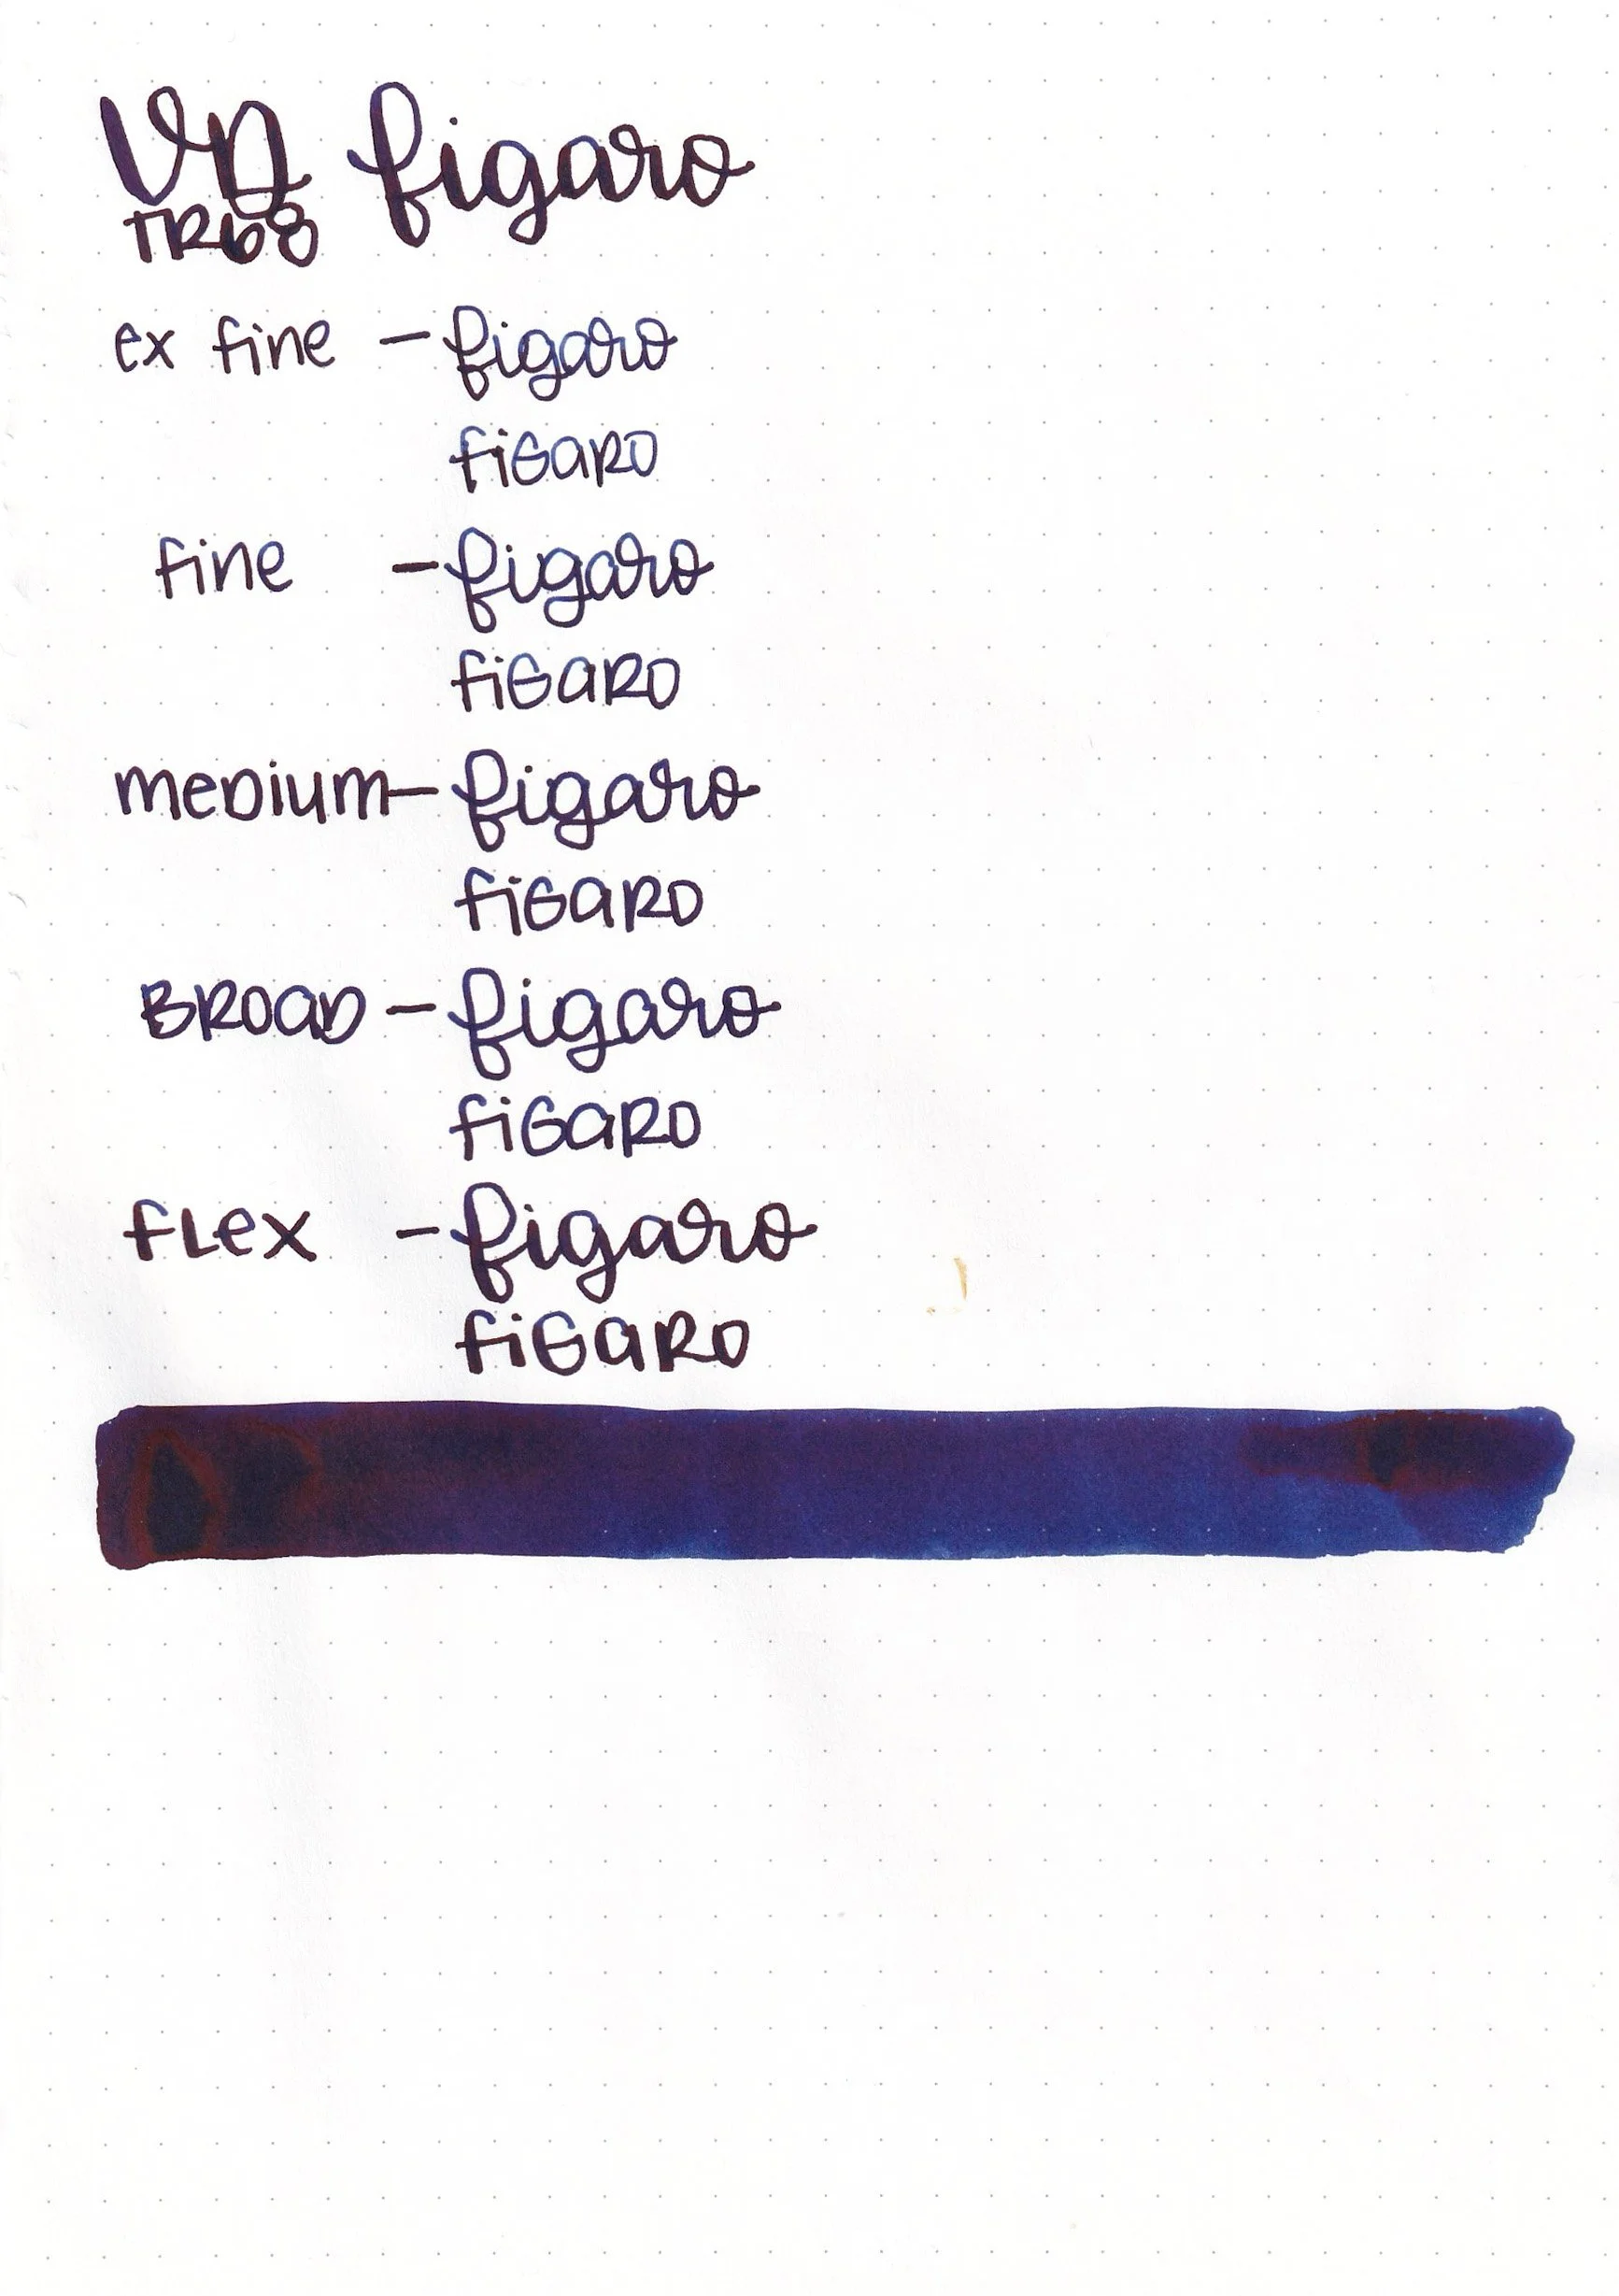 VD figaro
TR68
ex fine - figaro
fiGaRO
fine - figaro
fiGaRO
meDium - figaro
fiGaRO
BROaD - figaro
fiGaRO
fLex - figaro
fiGaRO